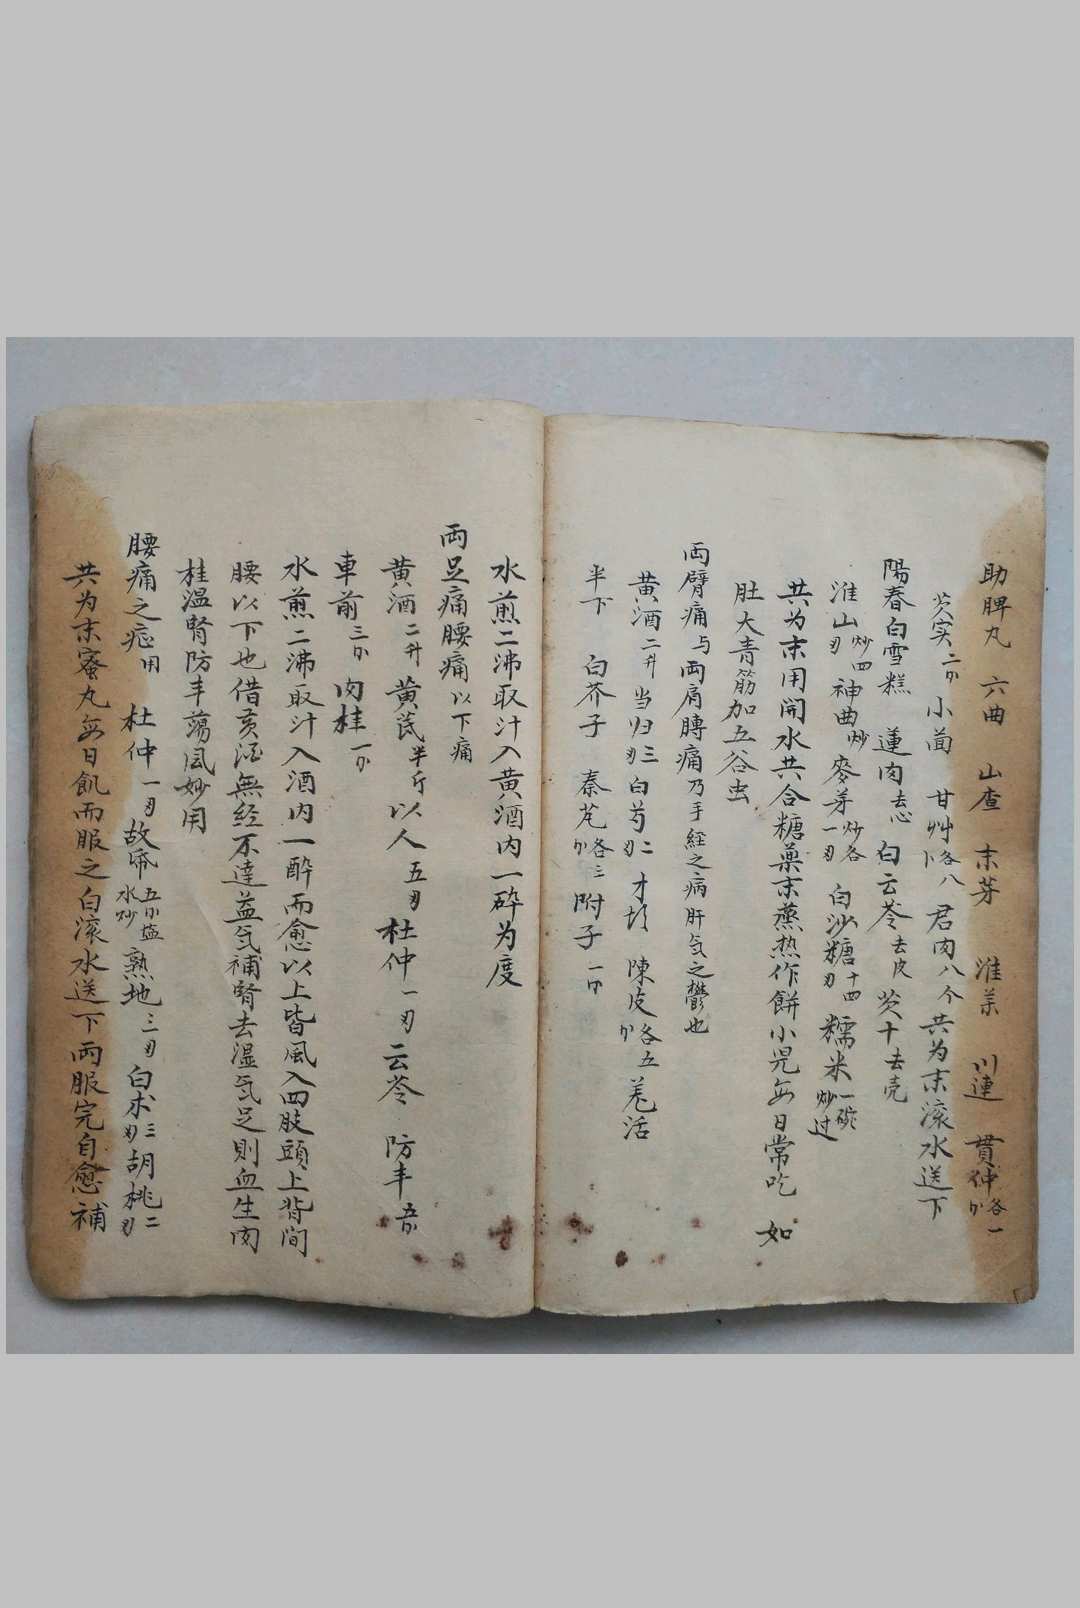 助脾丸 六曲 山查 末芽 淮羊 川連 貫仲各一
芡实二 小茴 甘艸各八 君肉八个 共为末滚水送下
陽春白雪糕 蓮肉去心 白云苓去皮 芡十去壳
淮山炒四刃 神曲炒 麥芽炒各一刃 白沙糖十四刃 糯米一碗炒过
共为末用開水共合糖藥末蒸热作餅小児每日常吃 如
肚大青筋加五谷虫
両臂痛与両肩膊痛乃手経之病肝气之鬱也
黄酒二升 当归三刃 白芍二刃 才 陳皮各五 羌活
半下 白芥子 秦艽各三 附子一
水煎二沸取汁入黄酒内一碎为度
両足痛腰痛以下痛
黄酒二升 黄芪半斤 以人五刃 杜仲一刃 云苓 防丰五
車前三 肉桂一
水煎二沸取汁入酒内一醉而愈以上皆風入四肢頭上背间
腰以下也借黄酒無经不達益气補腎去湿气足則血生肉
桂温腎防丰蕩风妙用
腰痛之症用 杜仲一刃 故帋五塩水炒 熟地三刃 白术三刃 胡桃二刃
共为末蜜丸每日飢而服之白滚水送下両服完自愈補